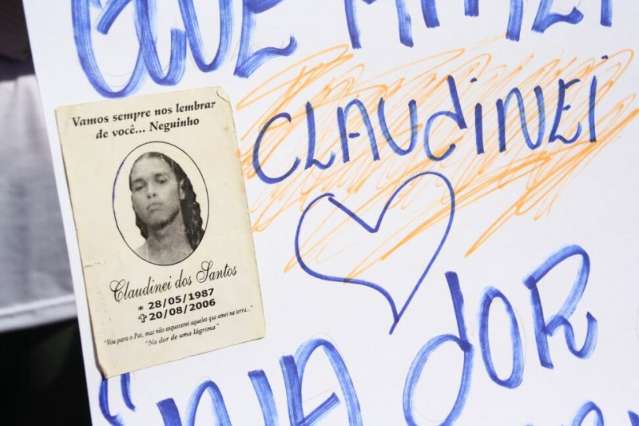 CLAUdiNEi
Vamos sempre nos lembrar
de você... Neguinho
Claudinei dos Santos
* 28/05/1987
✞ 20/08/2006
"Vou para o Pai, mas não esquecerei aqueles que amei na terra..."
"Na dor de uma lágrima"
dOR